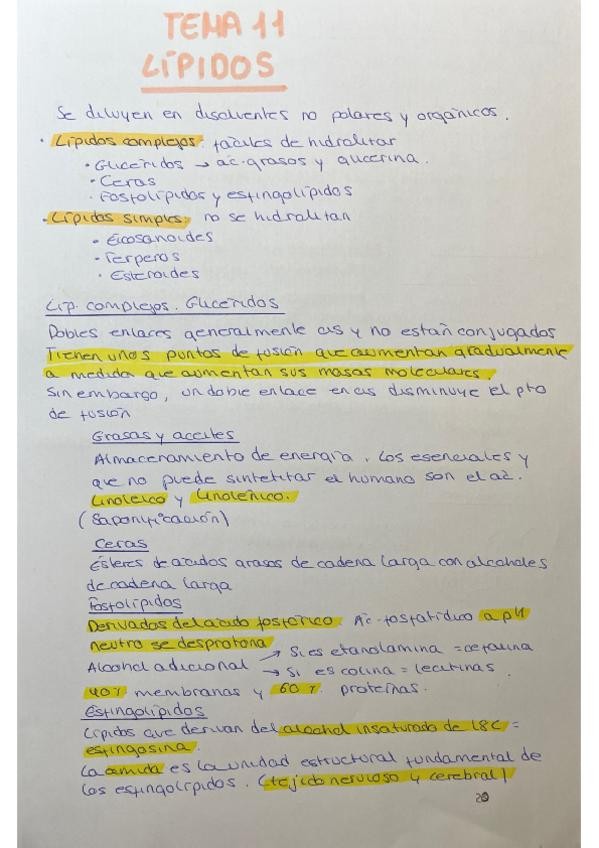 TEMA 11
LÍPIDOS
Se diluyen en disolventes no polares y orgánicos.
· Lípidos complejos: fáciles de hidrolizar
· Glicéridos → ác. grasos y glicerina.
· Ceras
· Fosfolípidos y esfingolípidos
· Lípidos simples: no se hidrolizan
· Eicosanoides
· Terpenos
· Esteroides
Lip. complejos. Glicéridos
Dobles enlaces generalmente cis y no están conjugados
Tienen unos puntos de fusión que aumentan gradualmente
a medida que aumentan sus masas moleculares.
Sin embargo, un doble enlace en cis disminuye el pto
de fusión
Grasas y aceites
Almacenamiento de energía. Los esenciales y
que no puede sintetizar el humano son el az.
Linoleico y Linolénico.
(Saponificación)
Ceras
Ésteres de ácidos grasos de cadena larga con alcoholes
de cadena larga
Fosfolípidos
Derivados del ácido fosfórico. Ác. fosfatídico a pH
neutro se desprotona
Alcohol adicional → Si es etanolamina = cefalina
→ Si es colina = lecitinas.
40% membranas y 60% proteínas.
Esfingolípidos
Lípidos que derivan del alcohol insaturado de 18C =
esfingosina.
La amida es la unidad estructural fundamental de
los esfingolípidos. (tejido nervioso y cerebral)
20